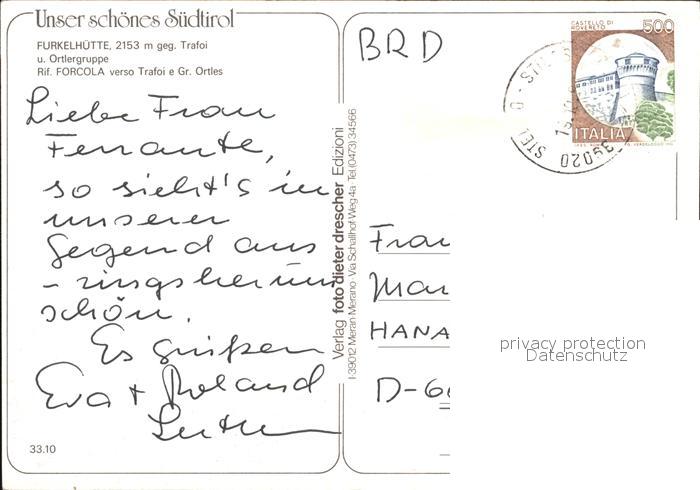 Unser schönes Südtirol
FURKELHÜTTE, 2153 m geg. Trafoi
u. Ortlergruppe
Rif. FORCOLA verso Trafoi e Gr. Ortles
Liebe Frau
Ferrante,
so sieht's in
unserer
Gegend aus
- ringsherum
schön.
Es grüßen
Eva + Roland
33.10
Verlag foto dieter drescher Edizioni
I-39012 Meran-Merano · Via Schallhof Weg 4a · Tel (0473) 34566
BRD
CASTELLO DI
ROVERETO
500
ITALIA
39020
Frau
Mar
HANA
D-6
privacy protection
Datenschutz